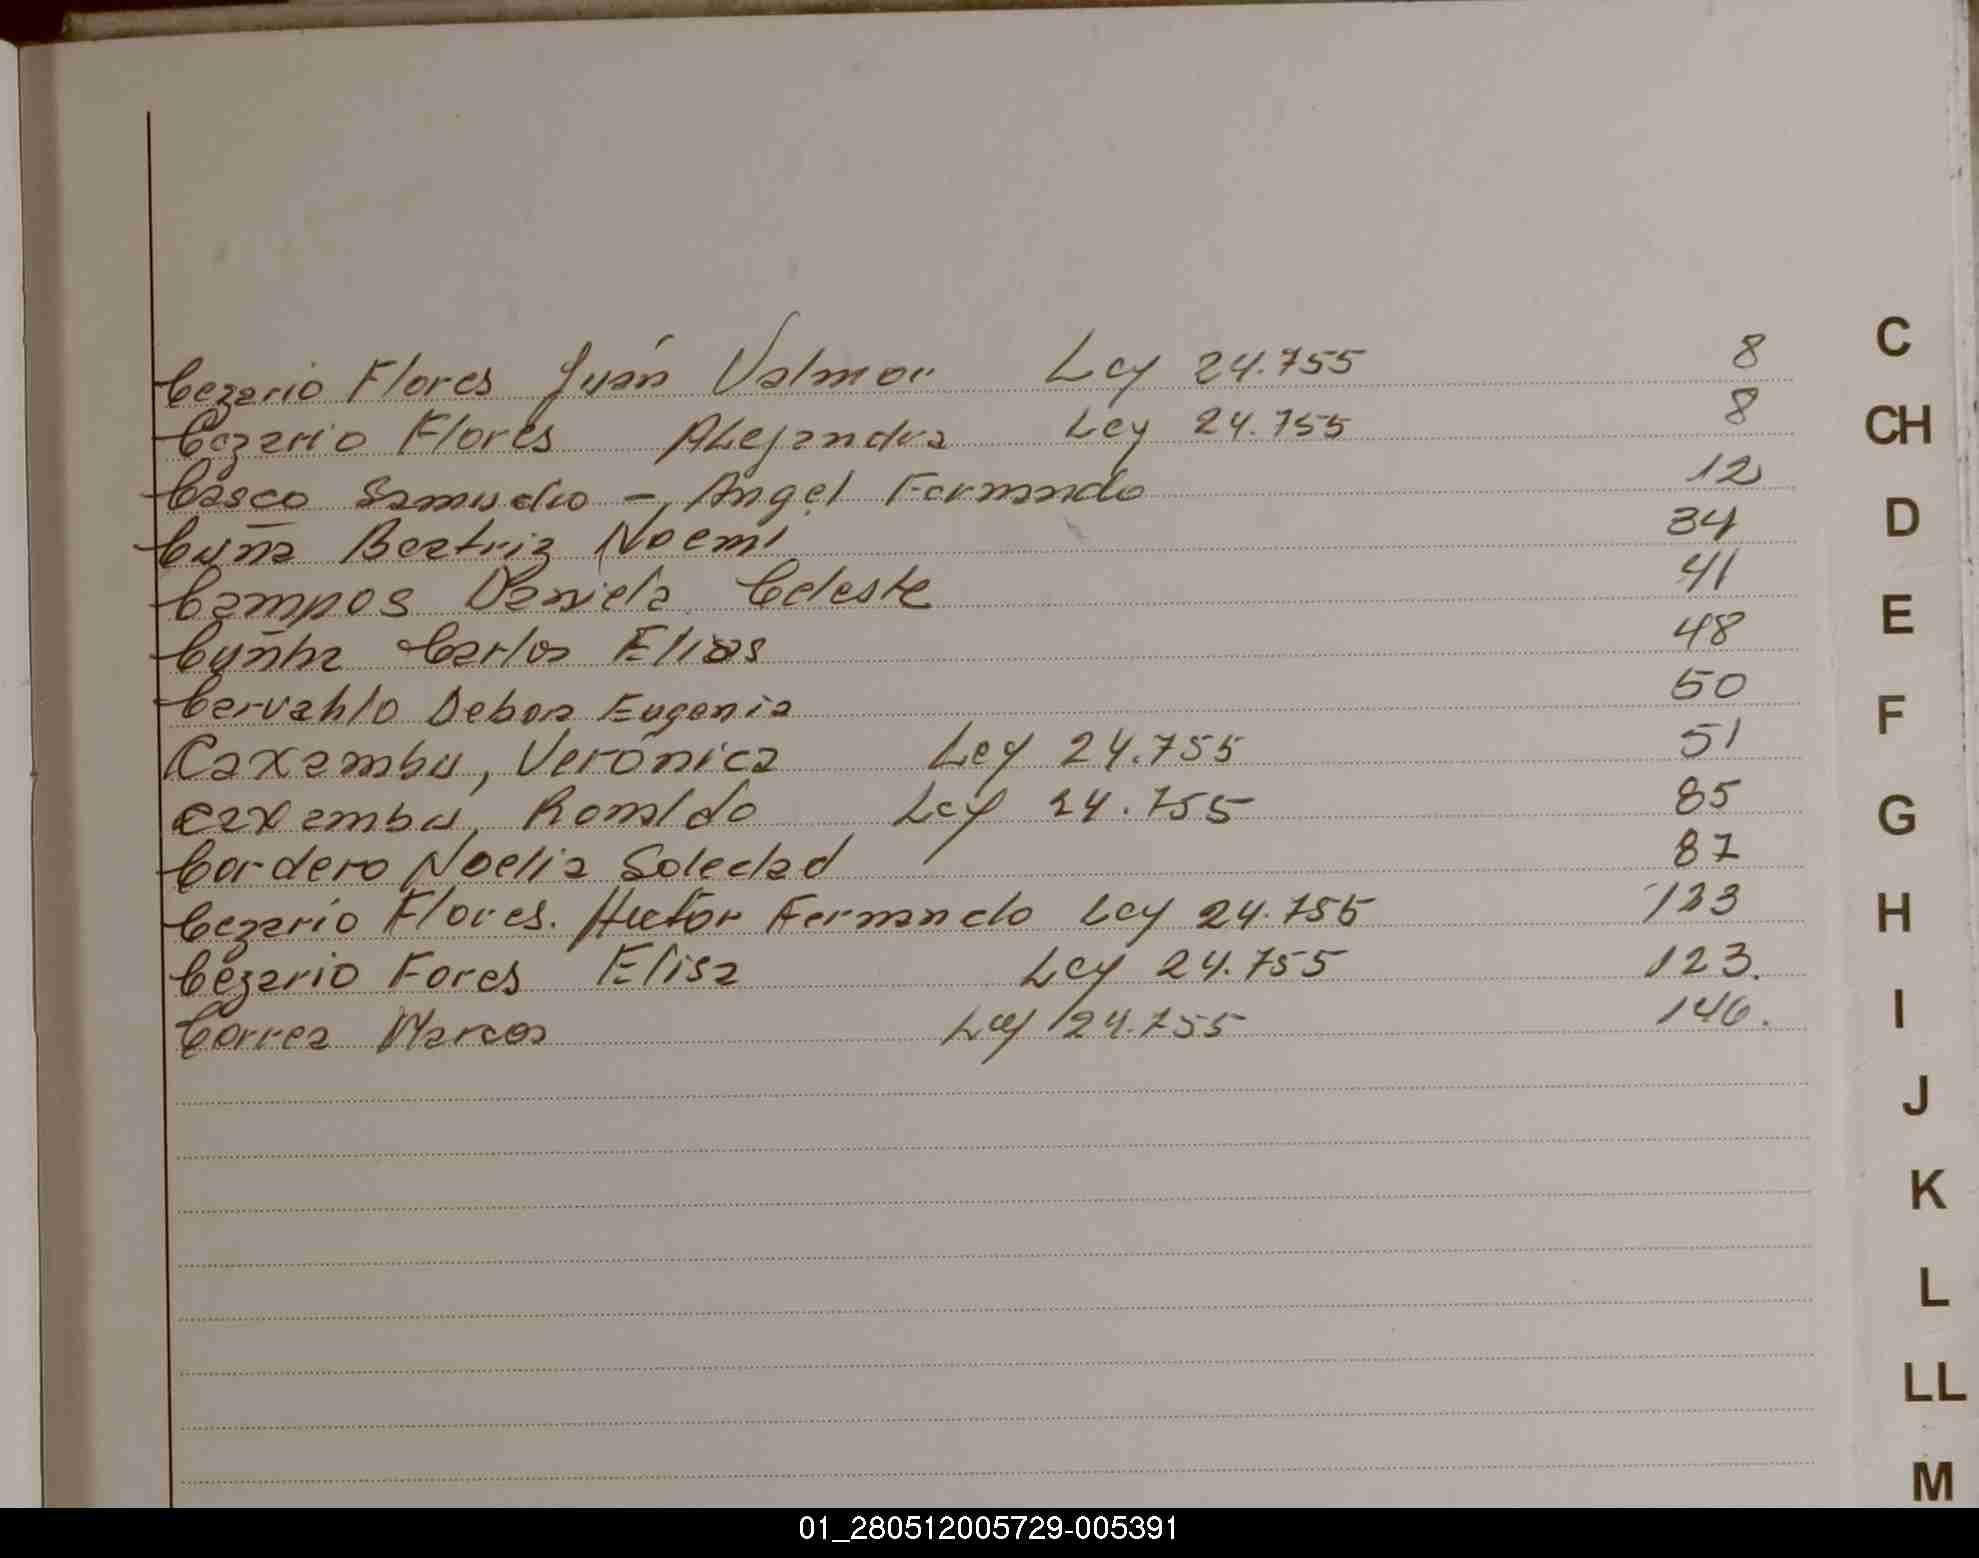 Cezario Flores Juán Valmor Ley 24.755 8
Cezario Flores Alejandra Ley 24.755 8
Casco Samudio - Angel Fernando 12
Cuña Beatriz Noemi 34
Campos Daniela Celeste 41
Cuñha Carlos Elias 48
Carvahlo Debora Eugenia 50
Caxambu, Verónica Ley 24.755 51
Caxambu, Ronaldo Ley 24.755 85
Cordero Noelia Soledad 87
Cezario Flores. Hector Fernando Ley 24.755 123
Cezario Fores Elisa Ley 24.755 123.
Correa Marcos Ley 24.755 146.
C
CH
D
E
F
G
H
I
J
K
L
LL
M
01_280512005729-005391